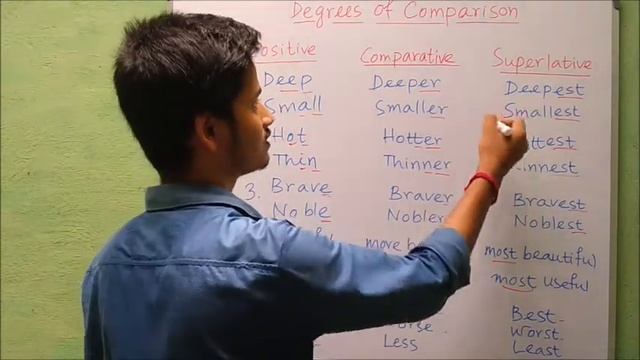 Degrees of Comparison
Positive Comparative Superlative
Deep Deeper Deepest
Small Smaller Smallest
Hot Hotter
Thin Thinner
3. Brave Braver Bravest
Noble Nobler Noblest
more most beautiful
most useful
Best
Worst
Less Least